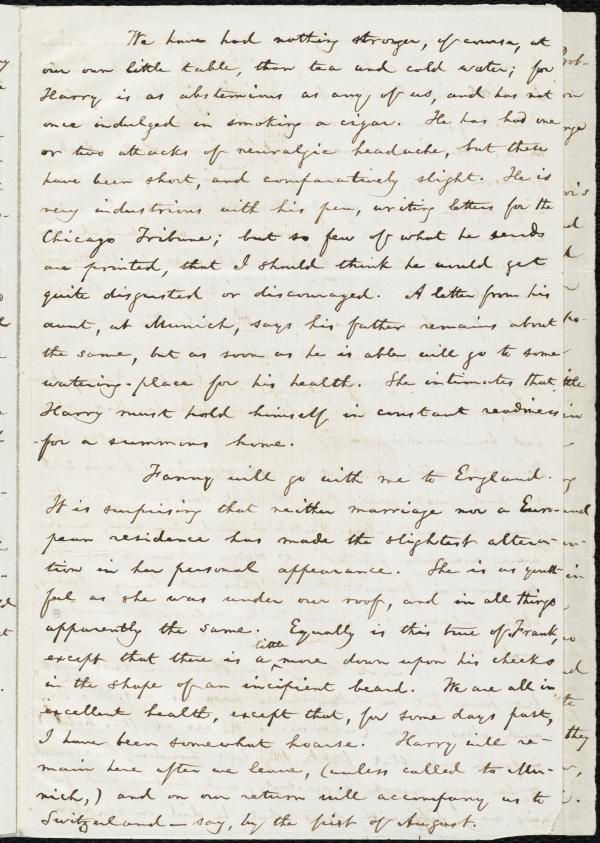 We have had nothing stronger, of course, at
our own little table, than tea and cold water; for
Harry is as abstemious as any of us, and has not
once indulged in smoking a cigar. He has had one
or two attacks of neuralgic headache, but these
have been short, and comparatively slight. He is
very industrious with his pen, writing letters for the
Chicago Tribune; but so few of what he sends
are printed, that I should think he would get
quite disgusted or discouraged. A letter from his
aunt, at Munich, says his father remains about
the same, but as soon as he is able will go to some
watering-place for his health. She intimates that
Harry must hold himself in constant readiness
for a summons home.
Fanny will go with me to England.
It is surprising that neither marriage nor a Euro-
pean residence has made the slightest altera-
tion in her personal appearance. She is as youth-
ful as she was under our roof, and in all things
apparently the same. Equally is this true of Frank,
except that there is a little more down upon his cheeks
in the shape of an incipient beard. We are all in
excellent health, except that, for some days past,
I have been somewhat hoarse. Harry will re-
main here after we leave, (unless called to Mu-
nich,) and on our return will accompany us to
Switzerland—say, by the first of August.